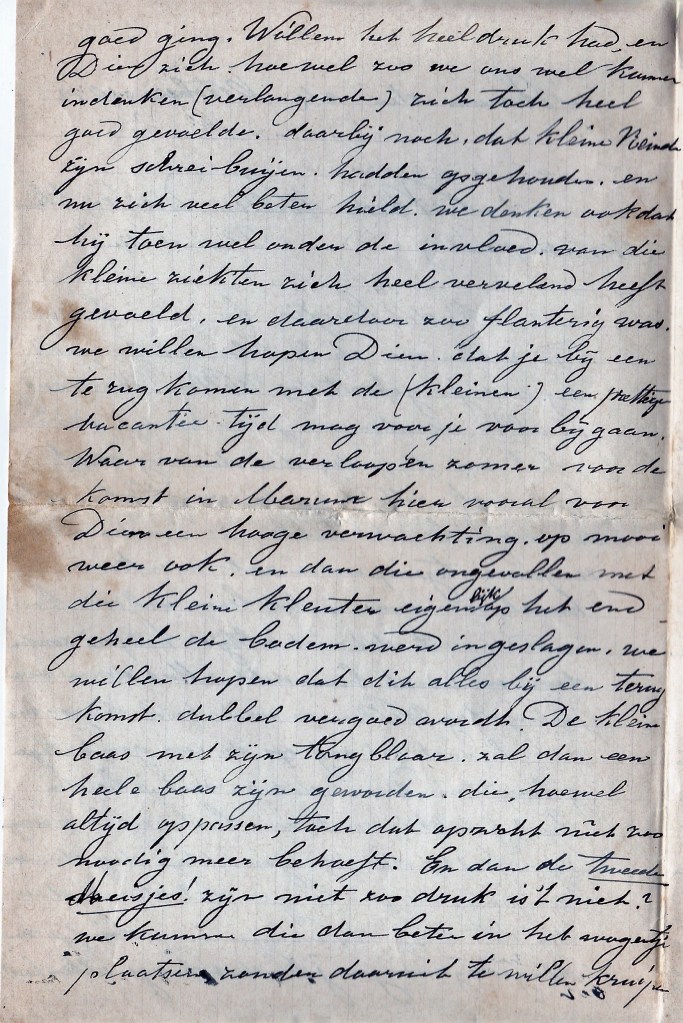 goed ging. Willem het heel druk had, en
Dien zich. hoewel zoo we ons wel kunnen
indenken (verlangende) zich toch heel
goed gevoelde. daarbij noch, dat kleine
zijn schreibuijen. hadden opgehouden. en
nu zich veel beter hield. we denken ook dat
hij toen wel onder de invloed. van die
kleine ziekten zich heel vervelend heeft
gevoeld, en daardoor zoo flanterig was.
we willen hopen Dien. dat je bij een
terug komen met de (kleinen) een prettige
vacantie-tijd mag voor je voor bij gaan.
Waar van de verloopen zomer voor de
komst in Marum hier vooral voor
Dien een hooge verwachting. op mooi
weer ook. en dan die ongevallen met
die kleine kleuter eigendlijk op het end
geheel de bodem. werd ingeslagen. we
willen hopen dat dit alles bij een terug
komst. dubbel vergoed wordt. De kleine
baas met zijn tongblaar. zal dan een
heele baas zijn geworden. die, hoewel
altijd oppassen, toch dat opzicht niet zoo
noodig meer behoeft. En dan de tweede
Meisjes! zijn niet zoo druk is't niet?
we kunnen die dan beter in het wagentje
plaatsen. zonder daaruit te willen kruipen